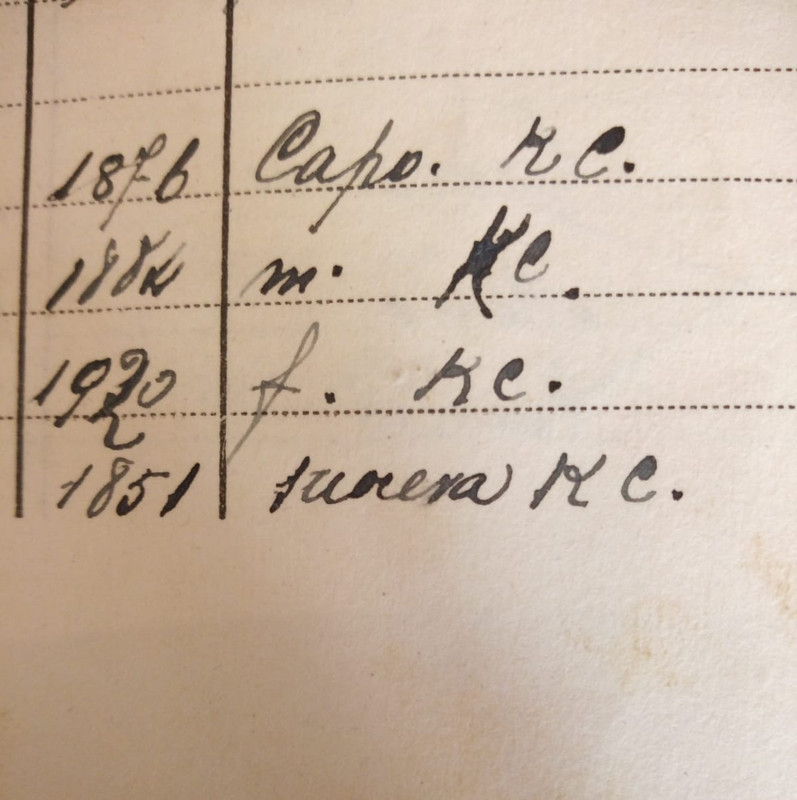 1876 Capo. K C.
1884 m. K C.
1920 f. K C.
1851 suocera K C.